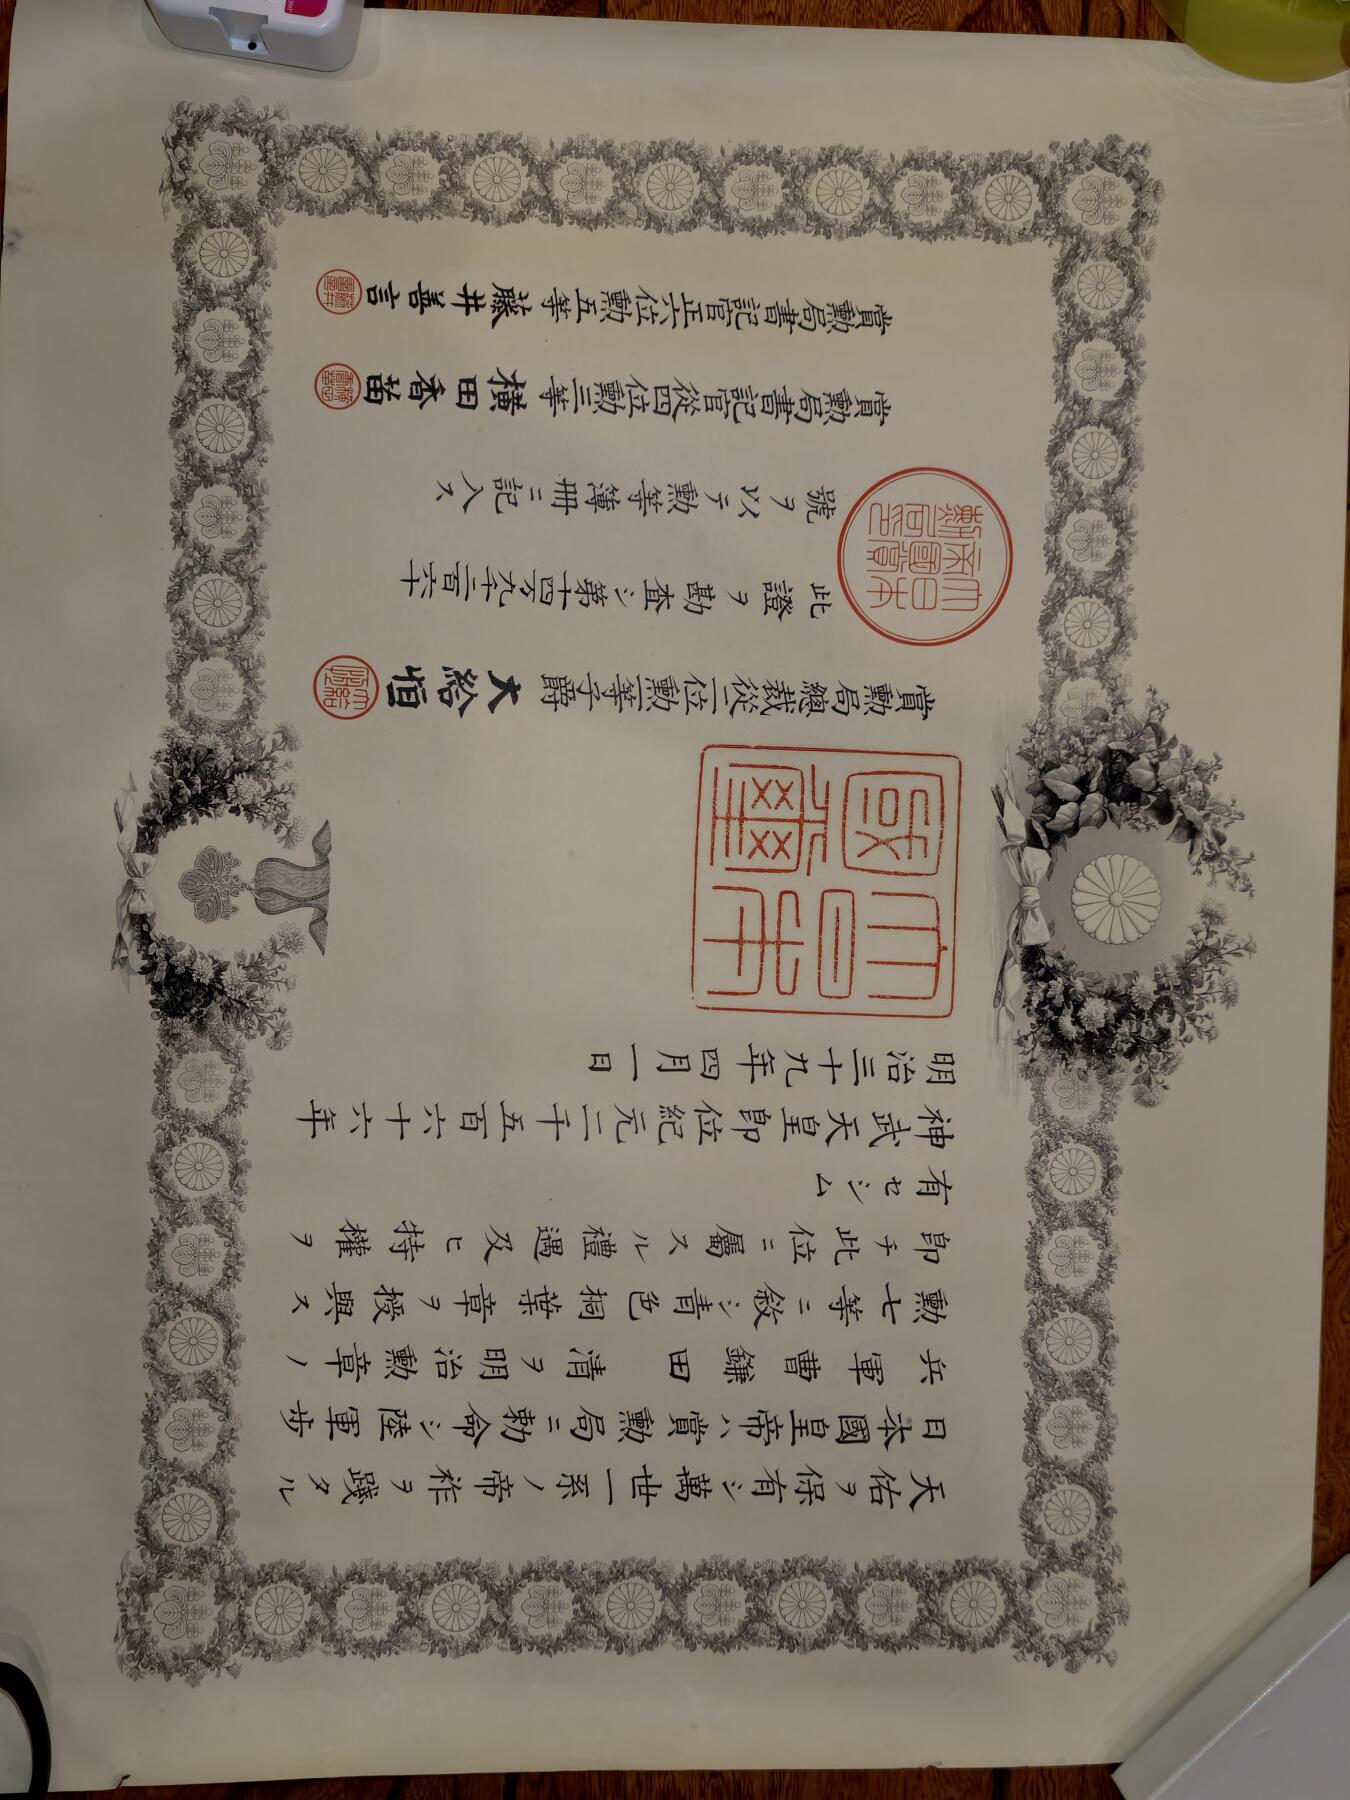 天佑ヲ保有シ萬世一系ノ帝祚ヲ踐タル
日本國皇帝ハ賞勲局ニ勅命シ陸軍歩
兵軍曹鎌田清ヲ明治勲章ノ
勲七等ニ敘シ青色桐葉章ヲ授與ス
卽チ此位ニ屬スル禮遇及ヒ特權ヲ
有セシム
神武天皇卽位紀元二千五百六十六年
明治三十九年四月一日
大日本
國璽
賞勲局總裁從二位勲一等子爵大給恒
此證ヲ勘査シ第十四万九千二百六十
號ヲ以テ勲等簿冊ニ記入ス
大日本
帝國賞
勲局印
賞勲局書記官從四位勲三等横田香苗
賞勲局書記官正六位勲五等藤井善言